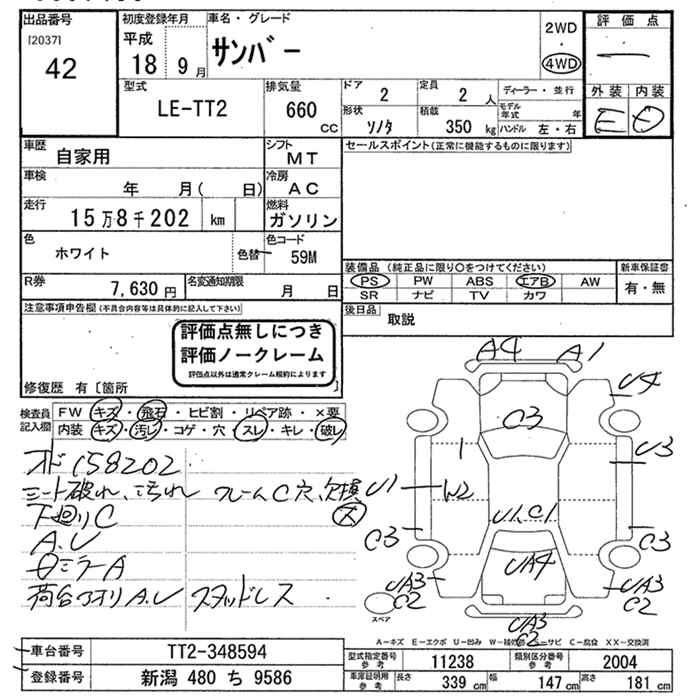 出品番号
[2037]
42
初度登録年月
平成
18 9月
車名・グレード
サンバー
2WD
・
4WD
評価点
―
外装 内装
E D
型式
LE-TT2
排気量
660
cc
ドア
2
定員
2 人
ディーラー・並行
モデル年式 年
形状
ソノタ
積載
350 kg
ハンドル 左・右
車歴
自家用
シフト
MT
セールスポイント(正常に機能するものに限ります)
車検
年 月( 日)
冷房
AC
走行
15万8千202 km
燃料
ガソリン
色
ホワイト
色替
色コード
59M
装備品(純正品に限り○をつけてください)
新車保証書
PS PW ABS エアB AW
SR ナビ TV カワ
有・無
R券
7,630円
名変通知期限
月 日
後日品
取説
注意事項申告欄(不具合内容等は具体的に記入して下さい)
評価点無しにつき
評価ノークレーム
評価点以外は通常クレーム規約によります
修復歴 有〔箇所
検査員
記入欄
FW キズ・飛石・ヒビ割・リペア跡・×要
内装 キズ・汚レ・コゲ・穴・スレ・キレ・破レ
オド158202
シート破れ、汚れ フレームC穴、欠損
大
下廻りC
A.U
ミラーA
荷台アオリA.U スタッドレス
A4
A1
U4
C3
1
U3
U1
W2
U1、C1
C3
C3
UA4
UA3
C2
UA3
C2
UA3
C2
スペア
A―キズ E―エクボ U―凹み W―補修跡 S―サビ C―腐食 XX―交換済
車台番号
TT2-348594
登録番号
新潟 480 ち 9586
型式指定番号
参考
11238
類別区分番号
参考
2004
車庫証明用
参考
長さ
339 cm
幅
147 cm
高さ
181 cm